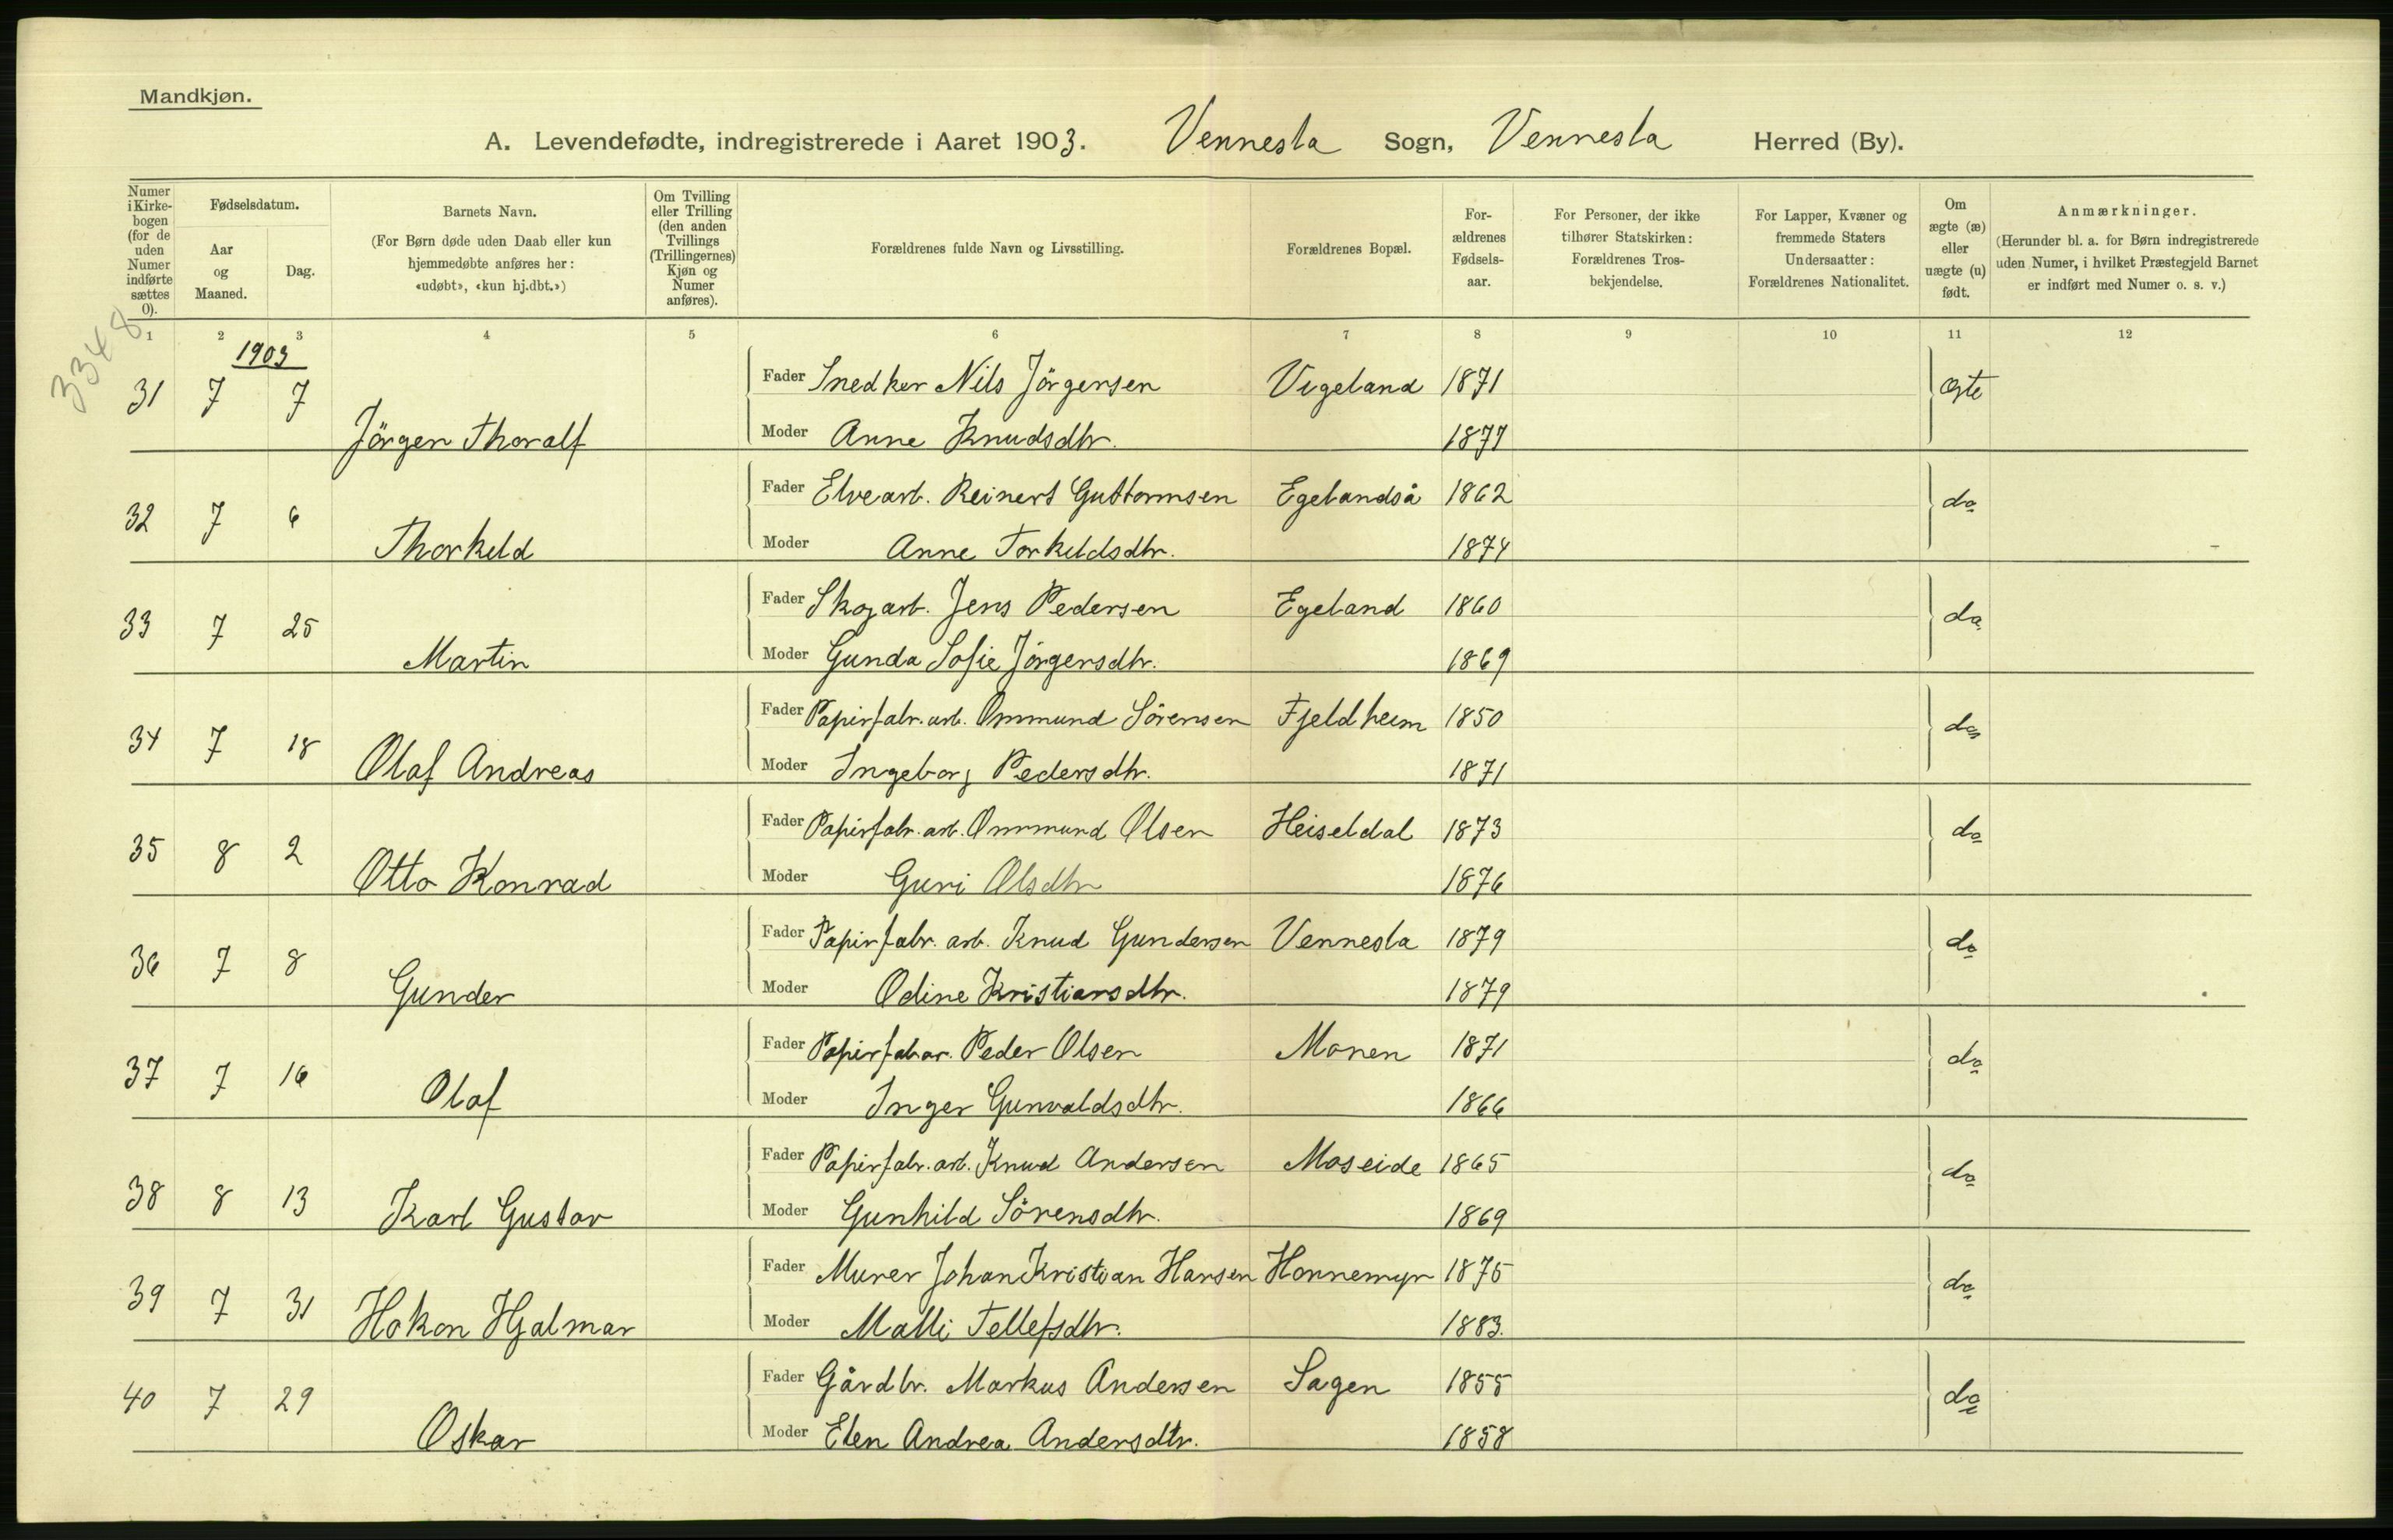 Mandkjøn.
A. Levendefødte, indregistrerede i Aaret 1903. Vennesla Sogn, Vennesla Herred (By).
Numer i Kirke-bogen (for de uden Numer indførte sættes 0).
Fødselsdatum.
Aar og Maaned.
Dag.
Barnets Navn.
(For Børn døde uden Daab eller kun hjemmedøbte anføres her: «udøbt», «kun hj.dbt.»)
Om Tvilling eller Trilling (den anden Tvillings (Trillingernes) Kjøn og Numer anføres).
Forældrenes fulde Navn og Livsstilling.
Forældrenes Bopæl.
For-ældrenes Fødsels-aar.
For Personer, der ikke tilhører Statskirken: Forældrenes Tros-bekjendelse.
For Lapper, Kvæner og fremmede Staters Undersaatter: Forældrenes Nationalitet.
Om ægte (æ) eller uægte (u) født.
Anmærkninger.
(Herunder bl. a. for Børn indregistrerede uden Numer, i hvilket Præstegjeld Barnet er indført med Numer o. s. v.)
1 2 3 4 5 6 7 8 9 10 11 12
3348
1903
31 7 7 Jörgen Thoralf Fader Snedker Nils Jörgensen Vigeland 1871 ægte
Moder Anne Knudsdtr. 1877
32 7 6 Thorkeld Fader Elvearb. Reinert Guttormsen Egelandså 1862 do
Moder Anne Torkeldsdtr. 1874
33 7 25 Martin Fader Skogarb. Jens Pedersen Egeland 1860 do
Moder Gunda Sofie Jörgensdtr. 1869
34 7 18 Olaf Andreas Fader Papirfabr. arb. Ommund Sörensen Fjeldheim 1850 do
Moder Ingeborg Pedersdtr. 1871
35 8 2 Otto Konrad Fader Papirfabr. arb. Ommund Olsen Heiseldal 1873 do
Moder Guri Olsdtr 1876
36 7 8 Gunder Fader Papirfabr. arb. Knud Gundersen Vennesla 1879 do
Moder Odine Kristiansdtr. 1879
37 7 16 Olaf Fader Papirfabar. Peder Olsen Monen 1871 do
Moder Inger Gunvaldsdtr. 1866
38 8 13 Karl Gustav Fader Papirfabr. arb. Knud Andersen Moseide 1865 do
Moder Gunhild Sörensdtr. 1869
39 7 31 Hakon Hjalmar Fader Murer Johan Kristian Hansen Honnemyr 1875 do
Moder Malli Tellefsdtr. 1883.
40 7 29 Oskar Fader Gårdbr. Markus Andersen Sagen 1855 do
Moder Elen Andrea Andersdtr. 1858